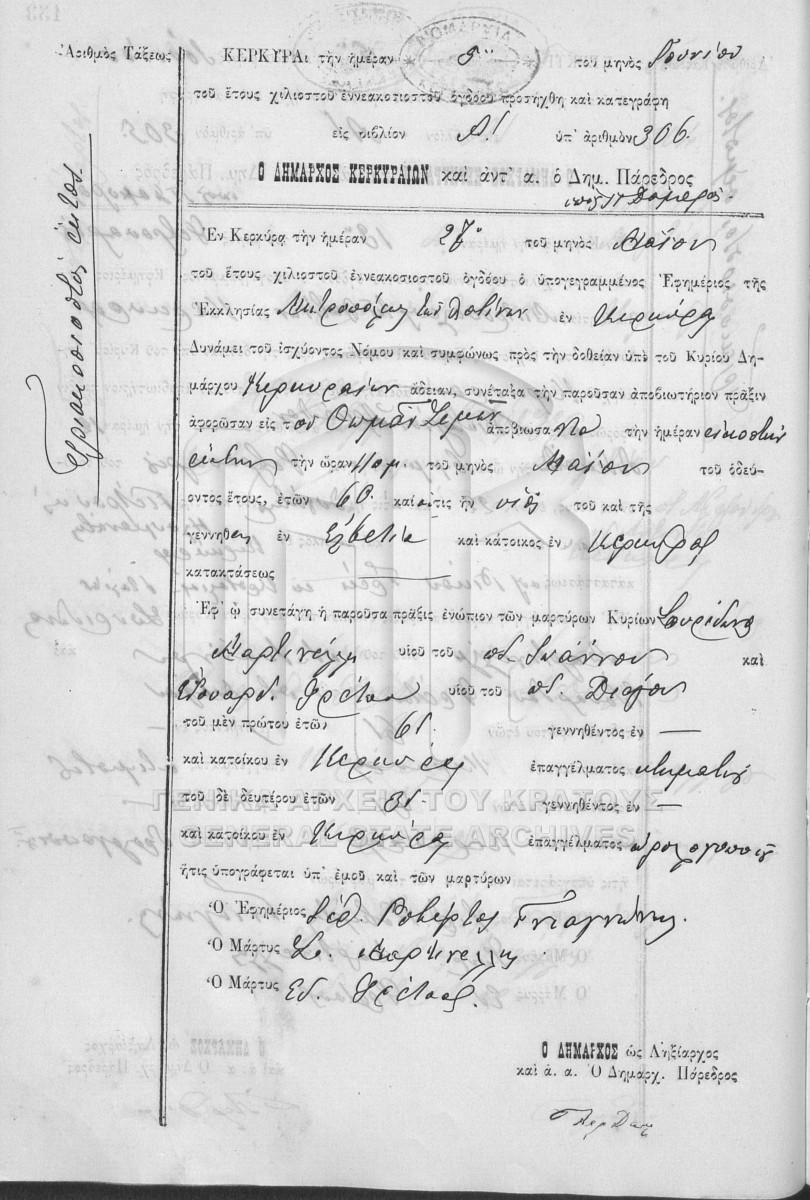 Ἀριθμὸς Τάξεως
Τριακοσιοστὸς ἕκτος
ΚΕΡΚΥΡΑι τὴν ἡμέραν τοῦ μηνὸς Ἰουνίου
τοῦ ἔτους χιλιοστοῦ ἐννεακοσιοστοῦ ὀγδόου προσήχθη καὶ κατεγράφη
εἰς βιβλίον Α! ὑπ' ἀριθμὸν 306.
Ο ΔΗΜΑΡΧΟΣ ΚΕΡΚΥΡΑΙΩΝ καὶ ἀντ' α. ὁ Δημ. Πάρεδρος
Ἐν Κερκύρᾳ τὴν ἡμέραν 27 τοῦ μηνὸς Μαΐου
τοῦ ἔτους χιλιοστοῦ ἐννεακοσιοστοῦ ὀγδόου ὁ ὑπογεγραμμένος Ἐφημέριος τῆς
Ἐκκλησίας Μητροπόλεως τῶν Λατίνων ἐν Κερκύρᾳ
Δυνάμει τοῦ ἰσχύοντος Νόμου καὶ συμφώνως πρὸς τὴν δοθεῖσαν ὑπὸ τοῦ Κυρίου Δη-
μάρχου Κερκυραίων ἄδειαν, συνέταξα τὴν παροῦσαν ἀποβιωτήριον πρᾶξιν
ἀφορῶσαν εἰς τὸν Θωμᾶν ἀποβιώσαντα τὴν ἡμέραν εἰκοστὴν
ἕκτην τὴν ὥραν μ.μ. τοῦ μηνὸς Μαΐου τοῦ ὁδεύ-
οντος ἔτους, ἐτῶν 60 καὶ ὅστις ἦν υἱὸς τοῦ καὶ τῆς
γεννηθεὶς ἐν Ἑλβετίᾳ καὶ κάτοικος ἐν Κερκύρᾳ
κατακτάσεως —
Ἐφ' ᾧ συνετάγη ἡ παροῦσα πρᾶξις ἐνώπιον τῶν μαρτύρων Κυρίων Σπυρίδωνος
Μαρτινέλλη υἱοῦ τοῦ ποτ. Ἰωάννου καὶ
Ἐδουάρδ. υἱοῦ τοῦ ποτ.
τοῦ μὲν πρώτου ἐτῶν 61. γεννηθέντος ἐν —
καὶ κατοίκου ἐν Κερκύρᾳ ἐπαγγέλματος κτηματίου
τοῦ δὲ δευτέρου ἐτῶν 31. γεννηθέντος ἐν —
ΓΕΝΙΚΑ ΑΡΧΕΙΑ ΤΟΥ ΚΡΑΤΟΥΣ
καὶ κατοίκου ἐν Κερκύρᾳ ἐπαγγέλματος ὡρολογοποιοῦ
GENERAL STATE ARCHIVES
ἥτις ὑπογράφεται ὑπ' ἐμοῦ καὶ τῶν μαρτύρων
Ὁ Ἐφημέριος Ροβέρτος
Ὁ Μάρτυς Σπ. Μαρτινέλλης
Ὁ Μάρτυς Ἐδ.
Ο ΔΗΜΑΡΧΟΣ ὡς Ληξίαρχος
καὶ ἀ. α. Ὁ Δημαρχ. Πάρεδρος